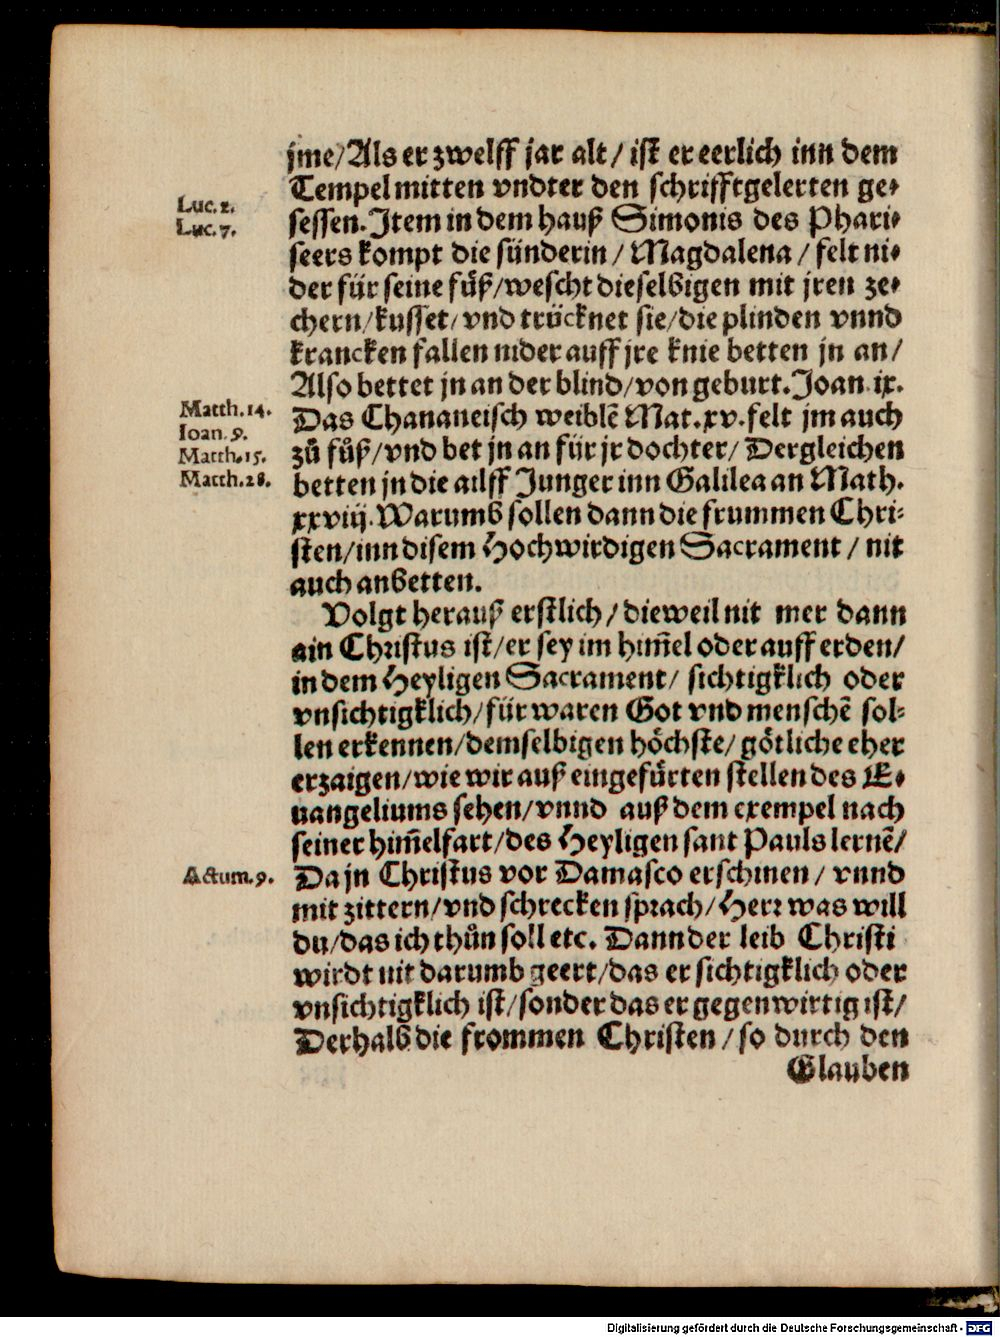 jme/Als er zwelff jar alt/ ist er eerlich inn dem
Tempel mitten vndter den schrifftgelerten ge⸗
Luc. 2.
sessen. Item in dem hauß Simonis des Phari⸗
Luc. 7.
seers kompt die sünderin/ Magdalena/ felt ni⸗
der für seine fuͤß/wescht dieselbigen mit jren ze⸗
chern/kusset/vnd truͤcknet sie/die plinden vnnd
krancken fallen nider auff jre knie betten jn an/
Also bettet jn an der blind/von geburt. Joan. ix.
Matth. 14.
Das Chananeisch weiblē Mat. xv. felt jm auch
Ioan. 9.
zů fuͤß/vnd bet jn an für jr dochter/ Dergleichen
Matth. 15.
betten jn die ailff Junger inn Galilea an Math.
Matth. 28.
xxviij. Warumb sollen dann die frummen Chri⸗
sten/inn disem Hochwirdigen Sacrament/ nit
auch anbetten.
Volgt herauß erstlich/ dieweil nit mer dann
ain Christus ist/er sey im him̄el oder auff erden/
in dem Heyligen Sacrament/ sichtigklich oder
vnsichtigklich/für waren Got vnd menschē sol⸗
len erkennen/demselbigen hoͤchste/ goͤtliche eher
erzaigen/wie wir auß eingefuͤrten stellen des E⸗
uangeliums sehen/vnnd auß dem exempel nach
seiner him̄elfart/des Heyligen sant Pauls lernē/
Actum. 9.
Da jn Christus vor Damasco erschinen/ vnnd
mit zittern/vnd schrecken sprach/Herr was will
du/das ich thůn soll etc. Dann der leib Christi
wirdt nit darumb geert/das er sichtigklich oder
vnsichtigklich ist/sonder das er gegenwirtig ist/
Derhalb die frommen Christen/so durch den
Glauben
Digitalisierung gefördert durch die Deutsche Forschungsgemeinschaft - DFG